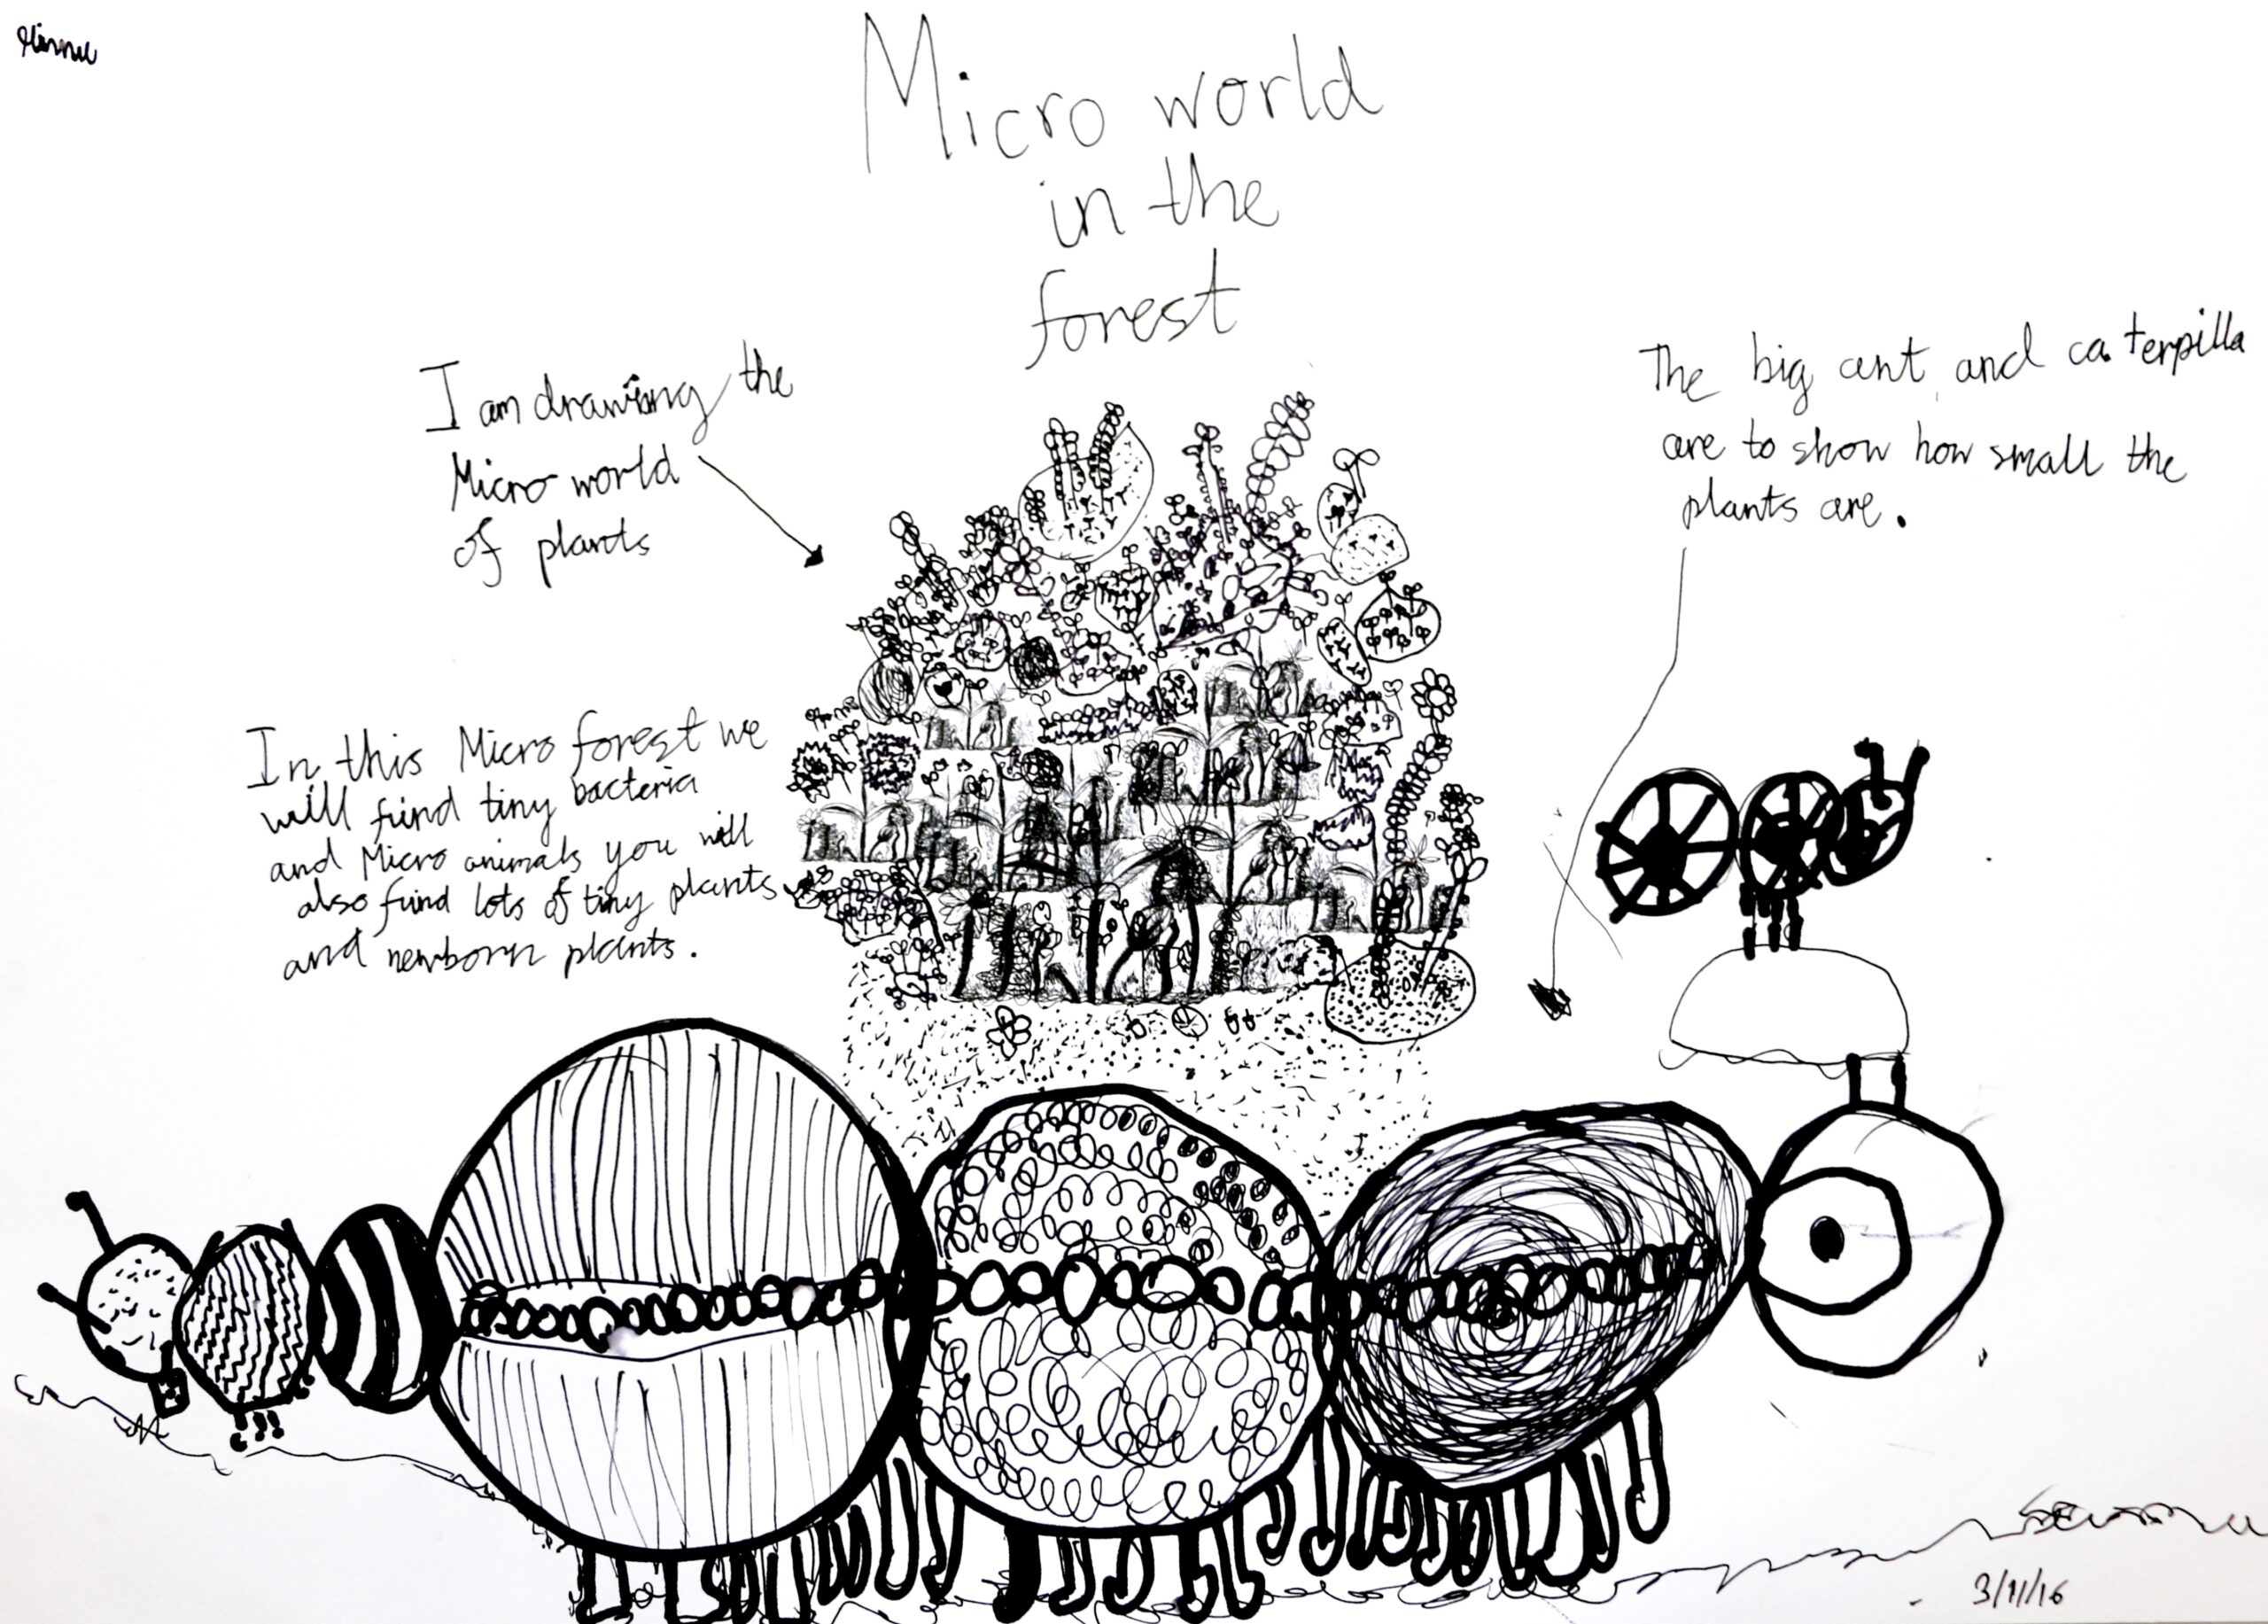 Micro world
in the
forest
I am drawing the
Micro world
of plants
The big ant and caterpilla
are to show how small the
plants are.
In this Micro forest we
will fiind tiny bacteria
and Micro animals you will
also fiind lots of tiny plants
and newborn plants.
3/11/16